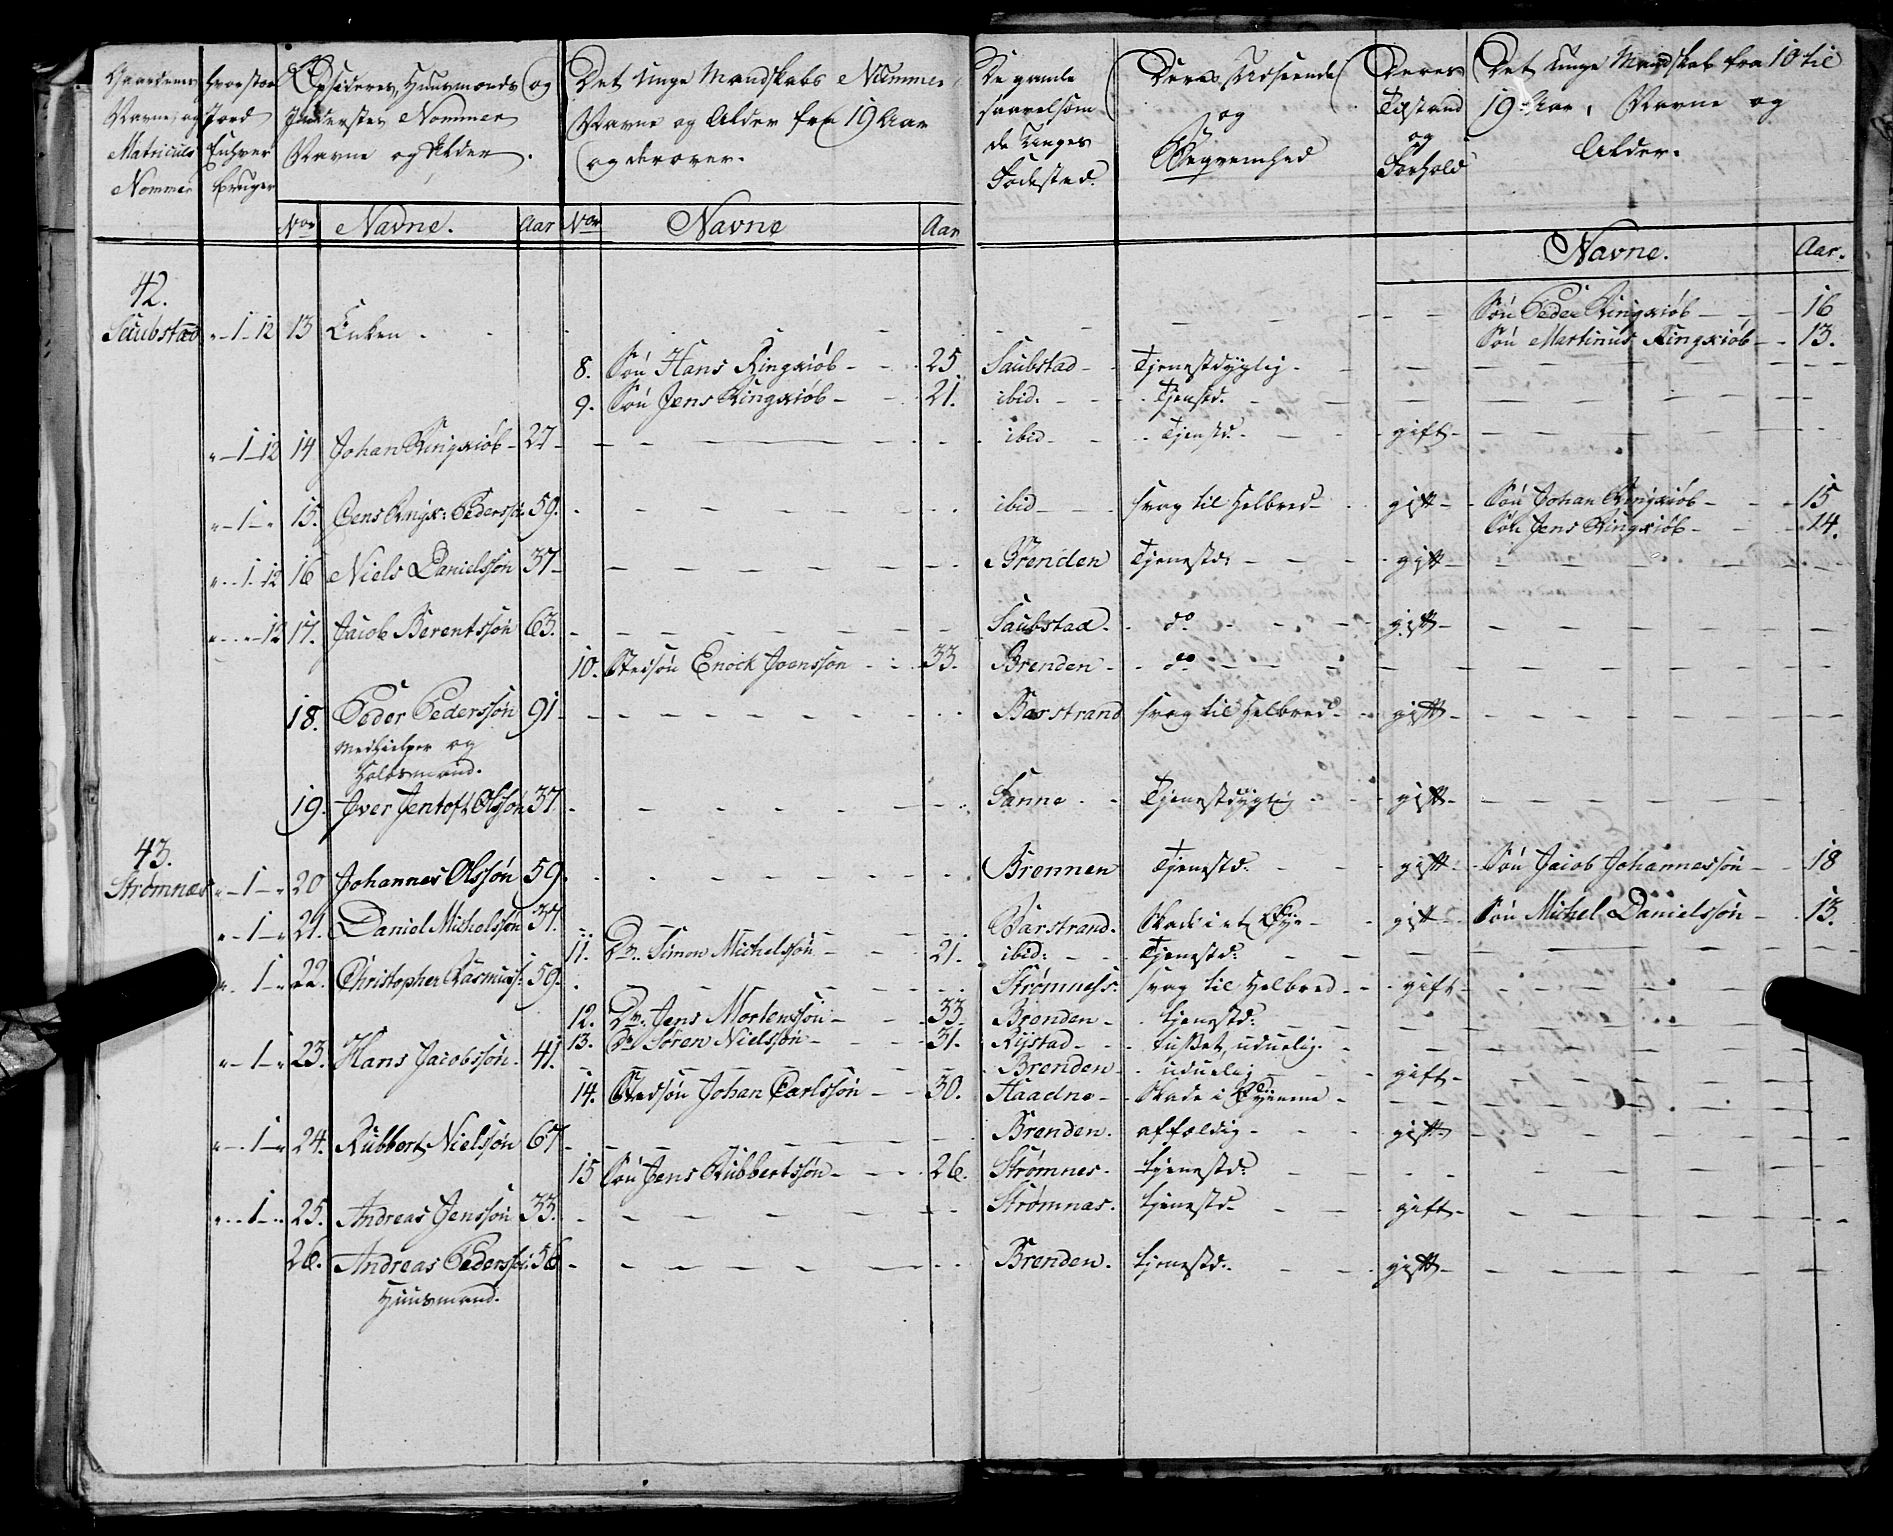 Gaardenes Navne, og Matriculs Nommer
hvor stor Jord Enhver bruger
Opsideres, Huusmænds og Inderstes Nommer Navne og Alder.
Det Unge Mandskabs Nummer, Navne og Alder fra 19 Aar og derover.
De gamle saavelsom de Unges Fødested.
Deres Udseende og Beqvemhed
Deres Tilstand og Forhold
Det Unge Mandskab fra 10 til 19 Aar, Navne og Alder.
Nor Navne. Aar Nor Navne Aar
Navne. Aar.
42.
Søn Peder Ringkiöb 16
Saubstad 1 12 13 Enken.
Søn Martinus Ringkiöb 13.
8. Søn Hans Ringkiöb 25 Saubstad Tjenestdygtig.
9. Søn Jens Ringkiöb 21. ibid. Tjenstd.
1 12 14 Johan Ringkiöb 27 ibid Tjenstd. gift
1 15. Jens Ringk: Pederss: 59. ibid svag til Helbred gift Søn Johan Ringkiöb 15
Søn Jens Ringkiöb 14.
1 12 16 Niels Danielssøn 37 Brenden Tjenestd: gift
12 17. Jacob Berentssøn 63. Saubstad. do gift
10. Stedsøn Enock Joenssøn 33. Brenden do
18. Peder Pederssøn 91 Barstrand svag til Helbred gift
Medhielper og
Holdsmand.
19. Iver Jentoft Olssøn 37 Sanne Tjenestdygtig gift
43.
Strømnæs 1 20 Johannes Olssøn 59. Brennen Tjenestd. gift Søn Jacob Johannessøn 18
1 21. Daniel Michelssøn 37. Barstrand. Skade i et Øye gift Søn Michel Danielssøn 13.
11. Dr. Simon Michelssøn 21. ibid: Tjenestd:
1 22. Christopher Rasmuss: 59. Strømness. svag til Helbred gift
12. Dr. Jens Mortenssøn 33 Brenden tjenestd:
13. Dr Søren Nielssøn 31. Rijstad tusset, uduelig.
1 23. Hans Jacobssøn 41. Brenden uduelig gift
14. Stedsøn Johan Carlssøn 30. Haadne Skade i Øynene
1 24. Rubbert Nielssøn 67 Brenden. affældig gift
15 Søn Jens Rubbertssøn 26. Strømnes. tjenestd:
1 25. Andreas Jenssøn 33. Strømnas. tjenestd. gift
26. Andreas Pederss: 56 Brenden. tjenestd. gift
Huusmand.